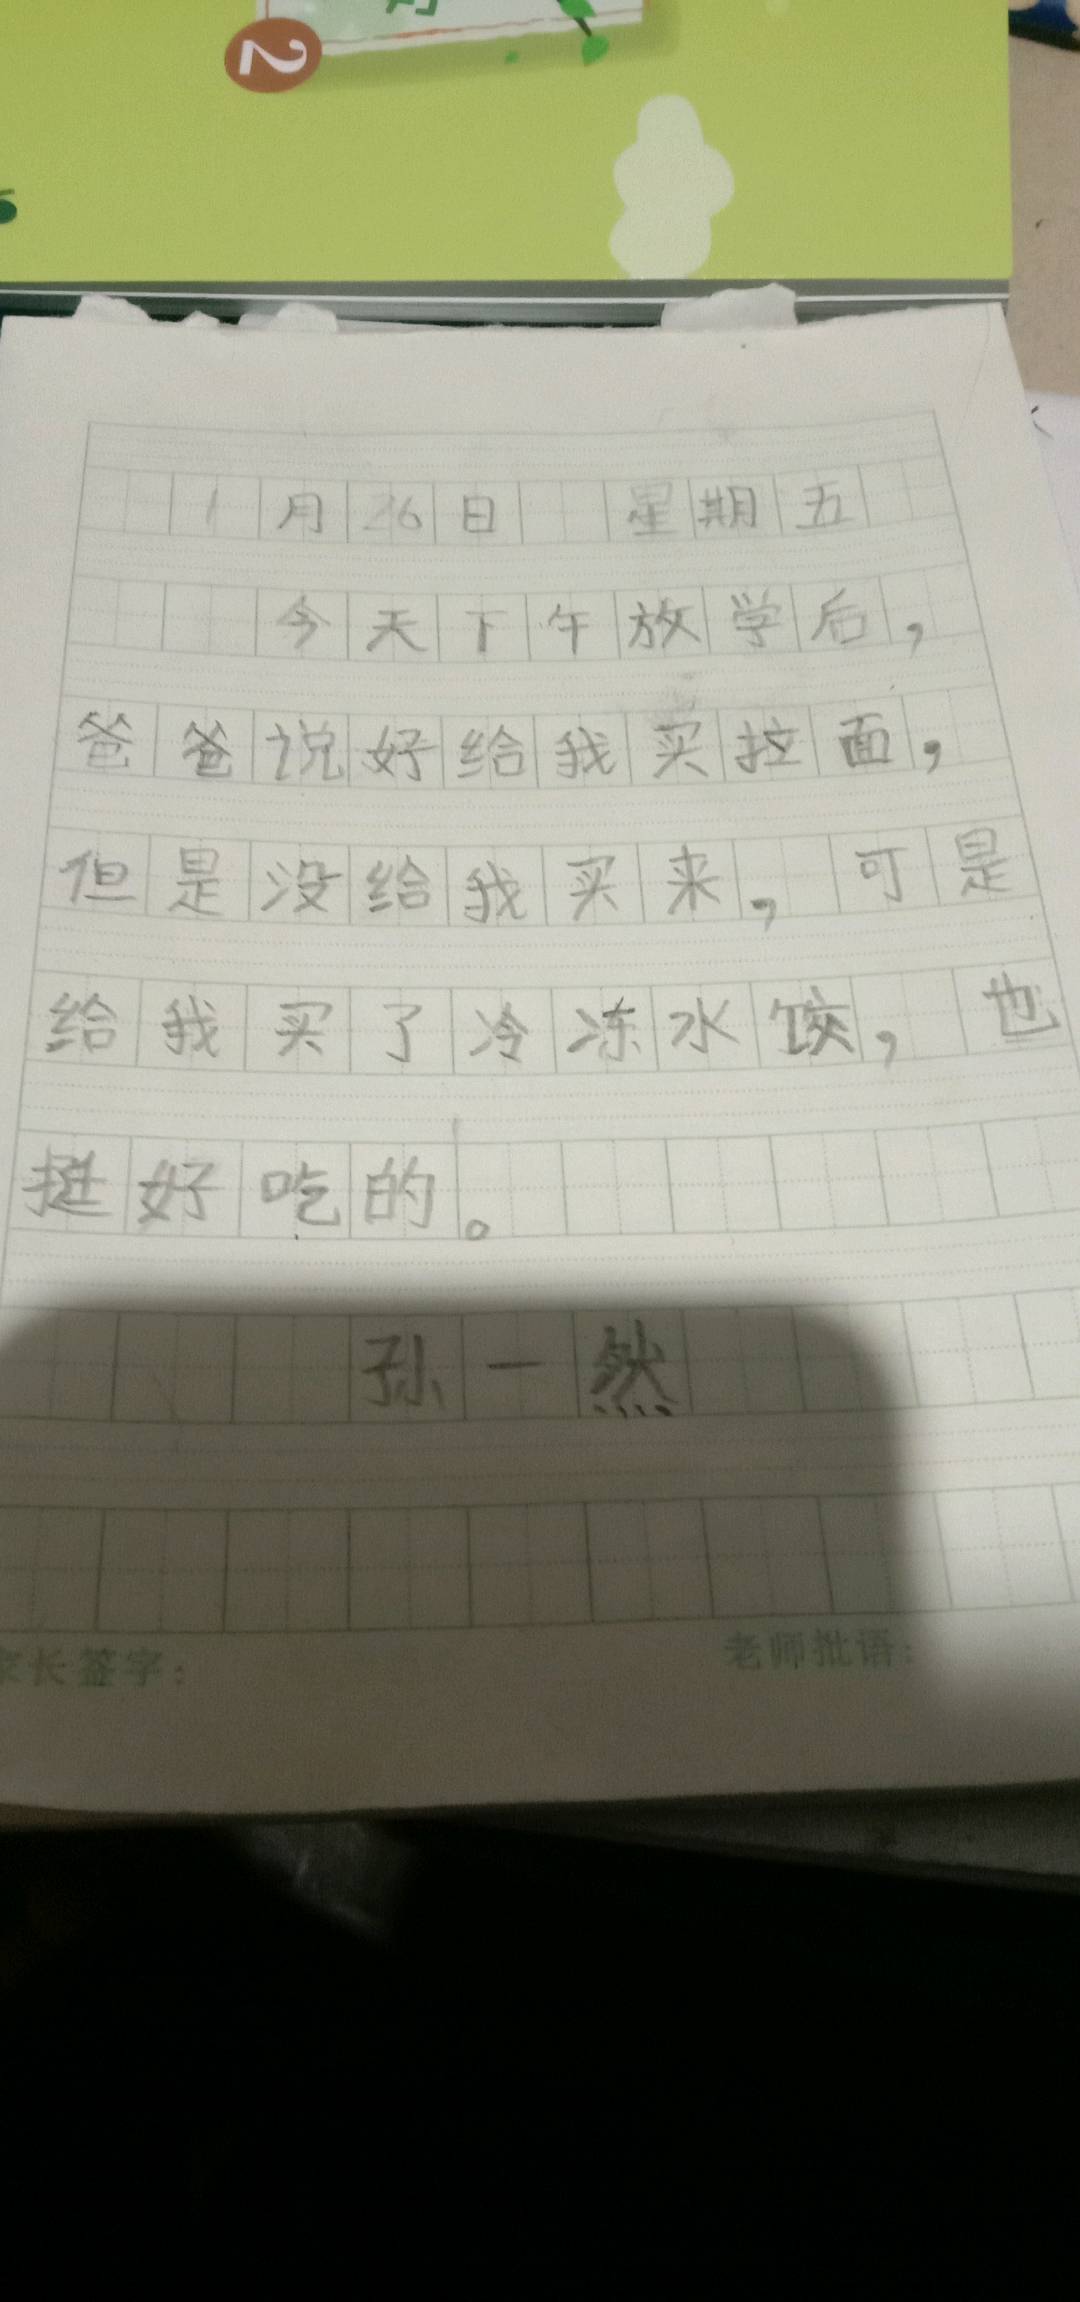 2
1月26日 星期五
今天下午放学后，
爸爸说好给我买拉面，
但是没给我买来，可是
给我买了冷冻水饺，也
挺好吃的。
孙一然
家长签字： 老师批语：